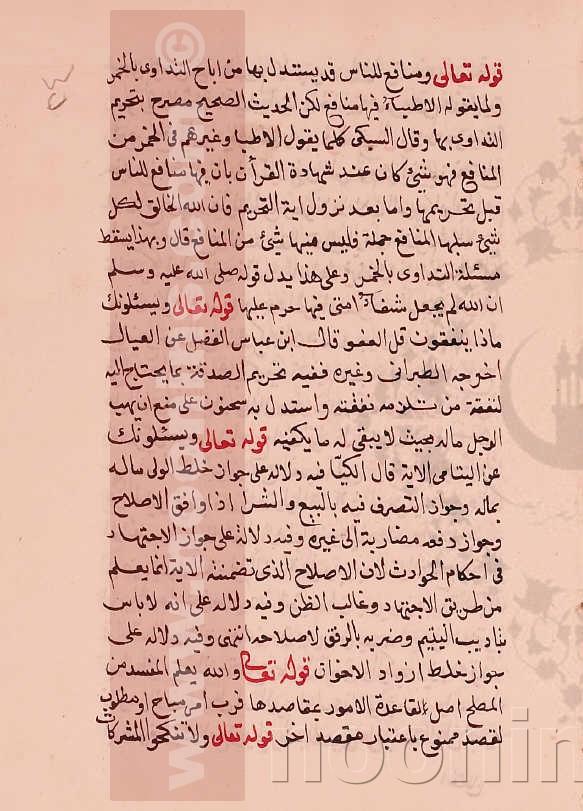 قوله تعالى ومنافع للناس قد يستدل بها من اباح التداوى بالخمر
ولما يقوله الاطباء فيها منافع لكن الحديث الصحيح مصرح بتحريم
التداوى بها وقال السبكى كلما يقول الاطبا وغيرهم فى الخمر من
المنافع فهو شئ كان عند شهادة القرأن بان فيها منافع للناس
قبل تحريمها واما بعد نزول اية التحريم فان الله الخالق لكل
شئ سلبها المنافع جملة فليس فيها شئ من المنافع قال وبهذا يسقط
مسئلة التداوى بالخمر وعلى هذا يدل قوله صلى الله عليه وسلم
ان الله لم يجعل شفاء امتى فيها حرم عليها قوله تعالى ويسئلونك
ماذا ينفقون قل العفو قال ابن عباس الفضل عن العيال
اخرجه الطبرانى وغيره ففيه تحريم الصدقة بما يحتاج اليه
لنفقة من تلزمه نفقته واستدل به سحنون على منع ان يهب
الرجل ماله بحيث لا يبقى له ما يكفيه قوله تعالى ويسئلونك
عن اليتامى الاية قال الكيا فيه دلالة على جواز خلط الولى ماله
بماله وجواز التصرف فيه بالبيع والشرا اذا وافق الاصلاح
وجواز دفعه مضاربة الى غيره وفيه دلالة على جواز الاجتهاد
فى احكام الحوادث لان الاصلاح الذى تضمنته الاية انما يعلم
من طريق الاجتهاد وغالب الظن وفيه دلالة على انه لا باس
بتاديب اليتيم وضربه بالرفق لاصلاحه انتهى وفيه دلالة على
جواز خلط ازواد الاخوان قوله تعالى والله يعلم المفسد من
المصلح اصل لقاعدة الامور بمقاصدها فرب امر مباح او مطلوب
لقصد ممنوع باعتبار مقصد اخر قوله تعالى ولا تنكحوا المشركات
noorlin